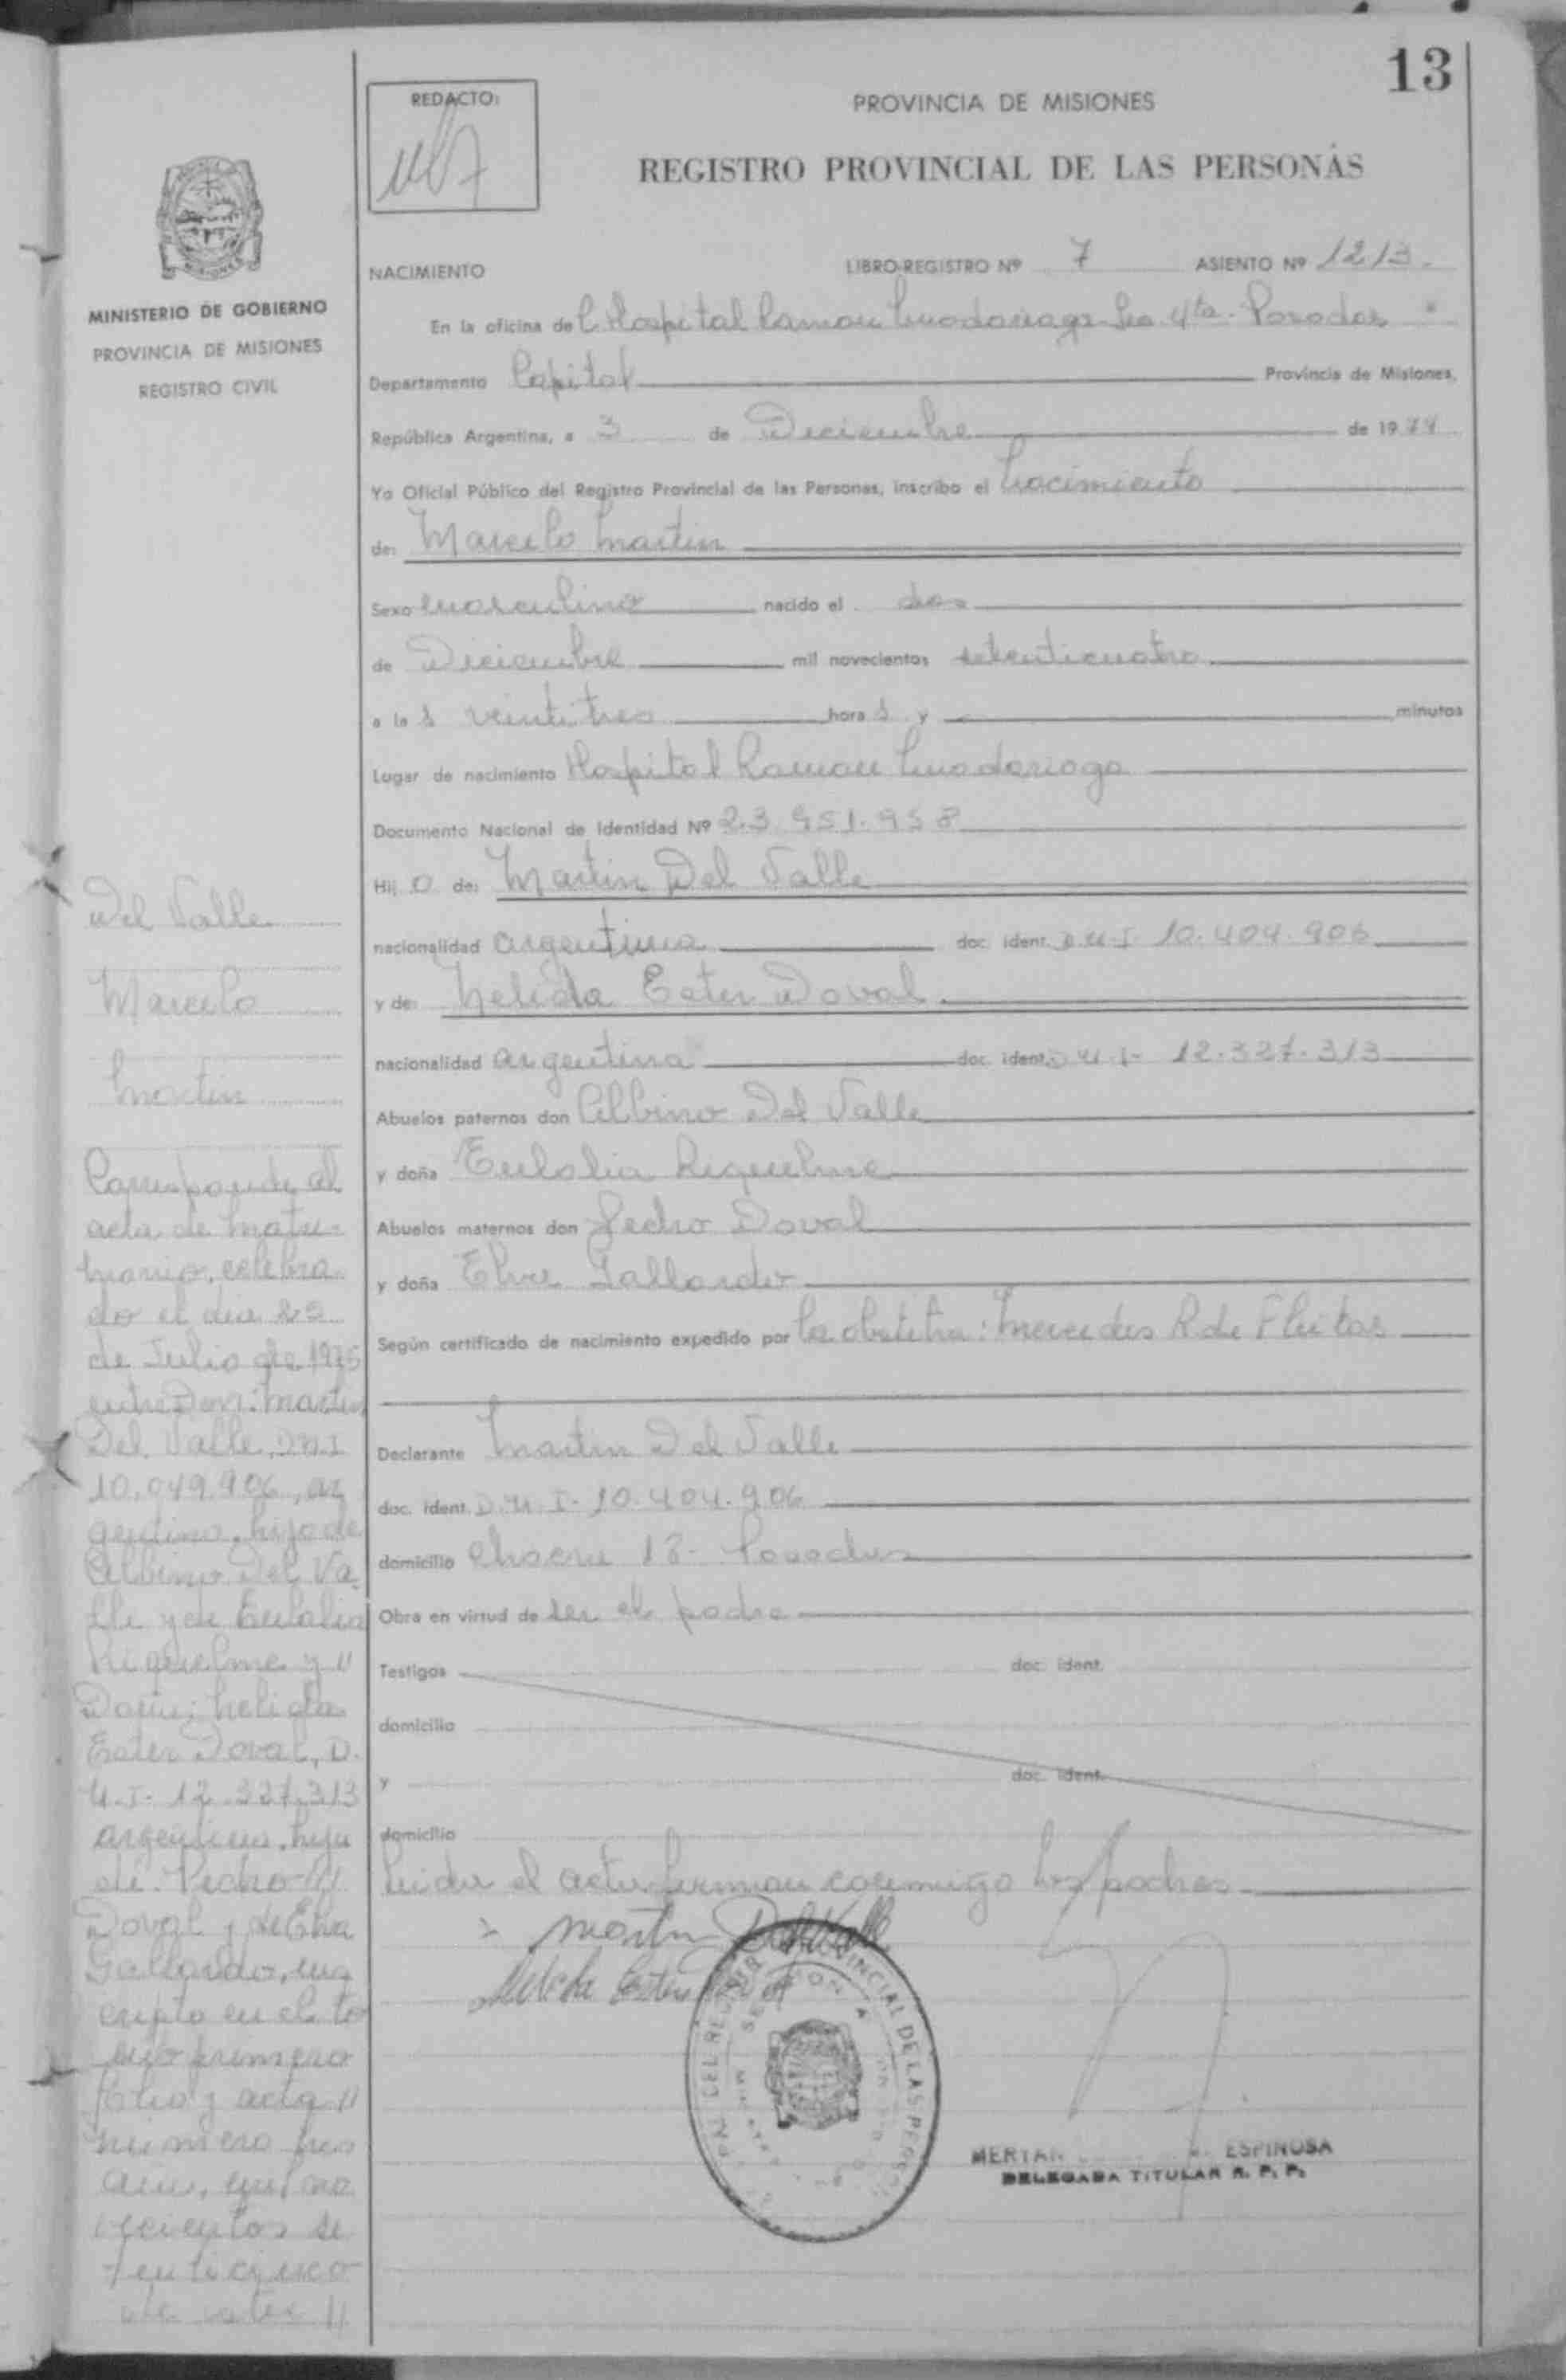 13
REDACTO:
PROVINCIA DE MISIONES
REGISTRO PROVINCIAL DE LAS PERSONAS
MINISTERIO DE GOBIERNO
PROVINCIA DE MISIONES
REGISTRO CIVIL
NACIMIENTO LIBRO-REGISTRO Nº 7 ASIENTO Nº 1213.
En la oficina del Hospital Ramon Madariaga Sec 4ta. Posadas
Departamento Capital Provincia de Misiones,
República Argentina, a 3 de Diciembre de 1974
Yo Oficial Público del Registro Provincial de las Personas, inscribo el nacimiento
de: Marcelo Martin
Sexo masculino nacido el dos
de Diciembre mil novecientos setenticuatro
a las veintitres horas y minutos
Lugar de nacimiento Hospital Ramon Madariaga
Documento Nacional de Identidad Nº 23.951.958
Hijo de: Martin Del Valle
nacionalidad argentina doc. ident. D.N.I. 10.404.906
y de: Nelida Ester Doval
nacionalidad argentina doc. ident. D.N.I. 12.327.313
Abuelos paternos don Albino Del Valle
y doña Eulalia Riquelme
Abuelos maternos don Pedro Doval
y doña Elva Gallardo
Según certificado de nacimiento expedido por la obstetra: Mercedes R de Fleitas
Declarante Martin Del Valle
doc. ident. D.N.I. 10.404.906
domicilio Chacra 18- Posadas
Obra en virtud de ser el padre
Testigos doc. ident.
domicilio
y doc. ident.
domicilio
Leida el acta firman conmigo los padres
Martin Del Valle
Nelida Ester Doval
MERYAN ESPINOSA
DELEGADA TITULAR R. P. P.
Del Valle
Marcelo
Martin
Corresponde al
acta de matri-
monio, celebra-
do el dia 25
de Julio de 1975
entre Don: Martin
Del Valle, D.N.I
10.049.906, ar
gentino, hijo de
Albino Del Va-
lle y de Eulalia
Riquelme y
Doña: Nelida
Ester Doval, D.
N.I. 12.327.313
argentina, hija
de Pedro
Doval y de Elva
Gallardo, ins
cripto en el to
mo primero
folio y acta
numero
seticinco